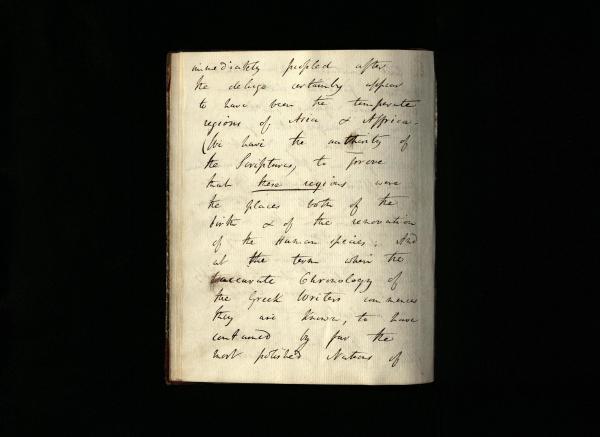 immediately peopled after
the deluge certainly appear
to have been the temperate
regions of Asia & Affrica.
(We have the authority of
the Scriptures, to prove
that these regions were
the places both of the
birth & of the renovation
of the Human species. And
at the term when the
accurate Chronology of
the Greek Writers commences
they are known, to have
contained by far the
most polished Nations of